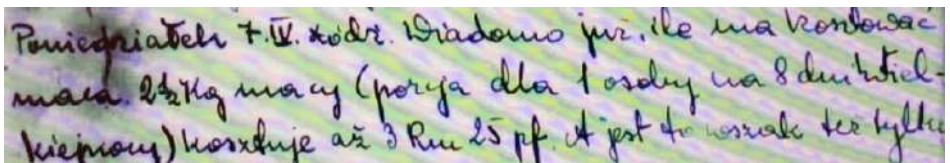 Poniedziałek 7.IV. Łódź. Wiadomo już, ile ma kosztować
maca. 2½ Kg macy (porcja dla 1 osoby na 8 dni Wiel-
kiejnocy) kosztuje aż 3 Rm 25 pf. A jest to wszak też tylko